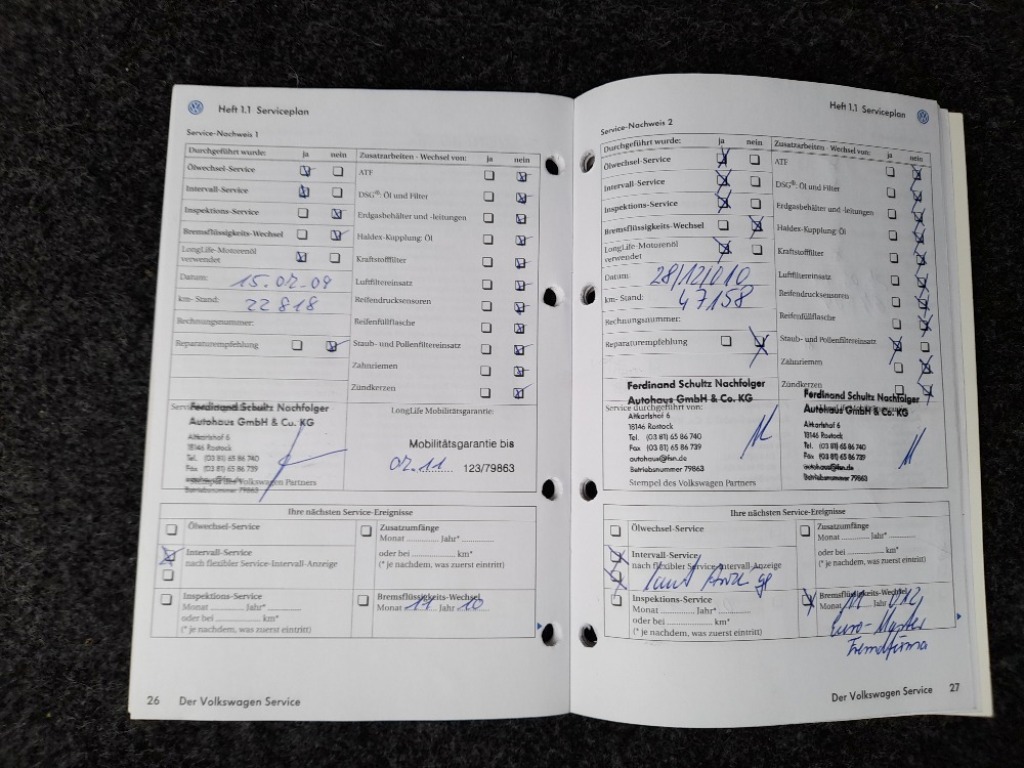 Heft 1.1 Serviceplan
Service-Nachweis 1
Durchgeführt wurde: ja nein
Ölwechsel-Service
Intervall-Service
Inspektions-Service
Bremsflüssigkeits-Wechsel
LongLife-Motorenöl
verwendet
Datum: 15.07.09
km- Stand: 22818
Rechnungsnummer:
Reparaturempfehlung
Zusatzarbeiten - Wechsel von: ja nein
ATF
DSG®: Öl und Filter
Erdgasbehälter und -leitungen
Haldex-Kupplung: Öl
Kraftstofffilter
Luftfiltereinsatz
Reifendrucksensoren
Reifenfüllflasche
Staub- und Pollenfiltereinsatz
Zahnriemen
Zündkerzen
Ferdinand Schultz Nachfolger
Autohaus GmbH & Co. KG
Altkarlshof 6
18146 Rostock
Tel. (03 81) 65 86 740
Fax (03 81) 65 86 739
Stempel des Volkswagen Partners
Betriebsnummer 79863
LongLife Mobilitätsgarantie:
Mobilitätsgarantie bis
07.11 123/79863
Ihre nächsten Service-Ereignisse
Ölwechsel-Service
Intervall-Service
nach flexibler Service-Intervall-Anzeige
Inspektions-Service
Monat Jahr*
oder bei km*
(* je nachdem, was zuerst eintritt)
Zusatzumfänge
Monat Jahr*
oder bei km*
(* je nachdem, was zuerst eintritt)
Bremsflüssigkeits-Wechsel
Monat 11 Jahr 10
26 Der Volkswagen Service
Heft 1.1 Serviceplan
Service-Nachweis 2
Durchgeführt wurde: ja nein
Ölwechsel-Service
Intervall-Service
Inspektions-Service
Bremsflüssigkeits-Wechsel
LongLife-Motorenöl
verwendet
Datum: 28/12/010
km- Stand: 47158
Rechnungsnummer:
Reparaturempfehlung
Zusatzarbeiten - Wechsel von: ja nein
ATF
DSG®: Öl und Filter
Erdgasbehälter und -leitungen
Haldex-Kupplung: Öl
Kraftstofffilter
Luftfiltereinsatz
Reifendrucksensoren
Reifenfüllflasche
Staub- und Pollenfiltereinsatz
Zahnriemen
Zündkerzen
Ferdinand Schultz Nachfolger
Autohaus GmbH & Co. KG
Service durchgeführt von:
Altkarlshof 6
18146 Rostock
Tel. (03 81) 65 86 740
Fax (03 81) 65 86 739
autohaus@fsn.de
Betriebsnummer 79863
Stempel des Volkswagen Partners
Ferdinand Schultz Nachfolger
Autohaus GmbH & Co. KG
Altkarlshof 6
18146 Rostock
Tel. (03 81) 65 86 740
Fax (03 81) 65 86 739
autohaus@fsn.de
Betriebsnummer 79863
Ihre nächsten Service-Ereignisse
Ölwechsel-Service
Intervall-Service
nach flexibler Service-Intervall-Anzeige
laut
Inspektions-Service
Monat Jahr*
oder bei km*
(* je nachdem, was zuerst eintritt)
Zusatzumfänge
Monat Jahr*
oder bei km*
(* je nachdem, was zuerst eintritt)
Bremsflüssigkeits-Wechsel
Monat 11 Jahr 012
Euro-Master
Fremdfirma
Der Volkswagen Service 27